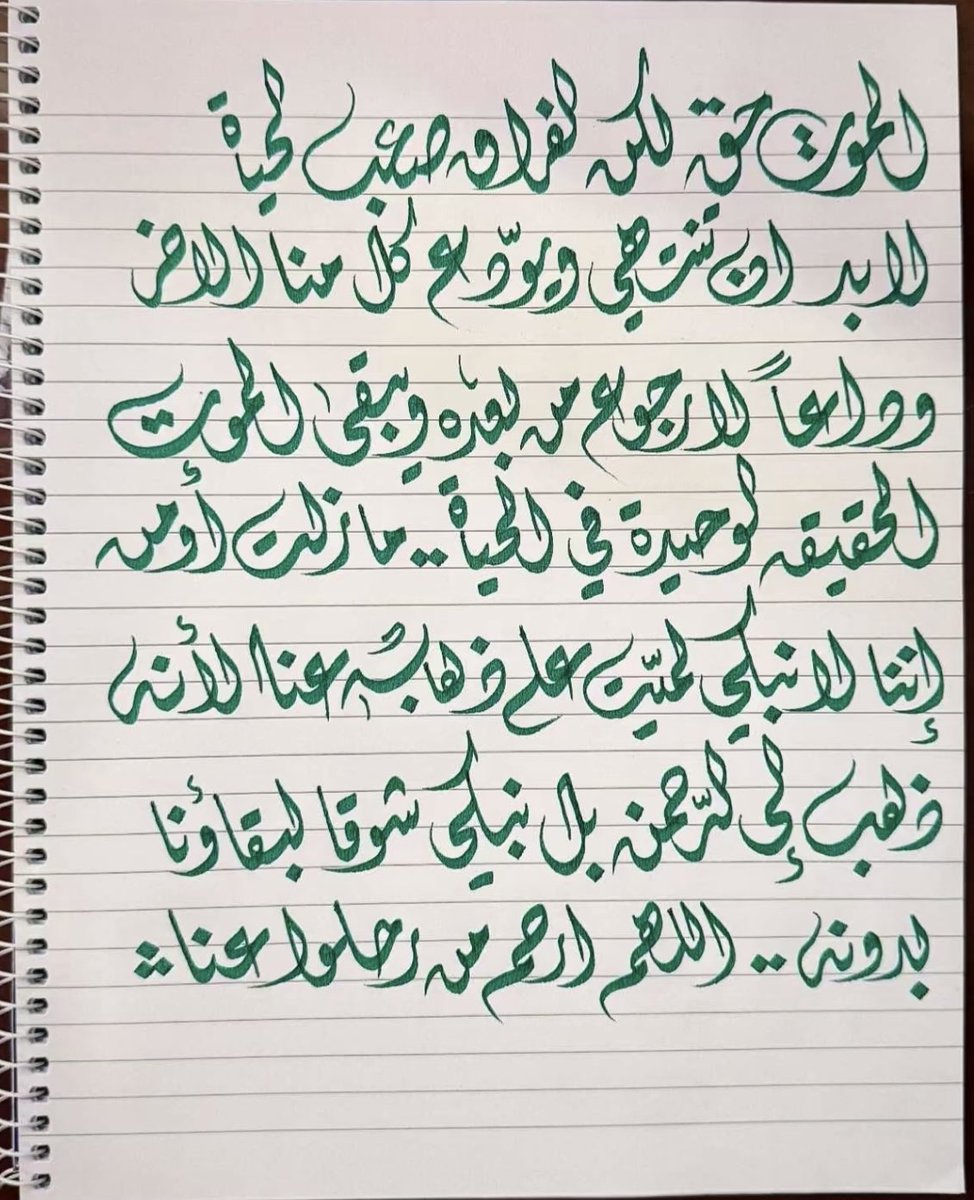 الموت حق لكن لفراق صعب لحياة
لابد ان تنتهي ويودّع كل منا الاخر
وداعاً لا رجوع من بعده ويبقى الموت
الحقيقه لوحيدة في الحياة .. ما زلت أومن
إننا لا نبكي لميّت على ذهابه عنا لأنه
ذهب إلى لرّحمن بل نبكي شوقا لبقاؤنا
بدونه .. اللهم ارحم من رحلوا عنا